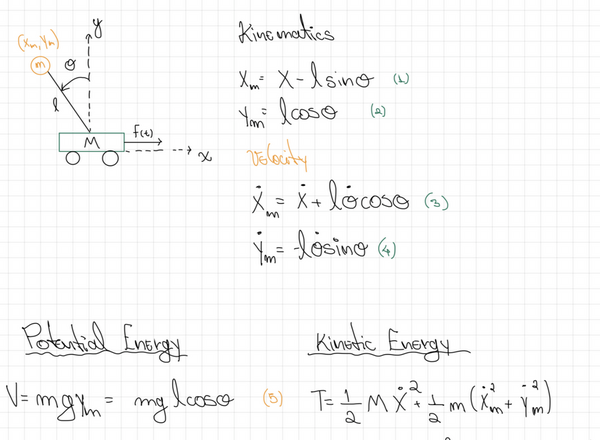 y
(xₘ, yₘ)
m
θ
l
M
f(t)
x
Kinematics
xₘ = x - l sinθ (1)
yₘ = l cosθ (2)
Velocity
ẋₘ = ẋ + lθ̇ cosθ (3)
ẏₘ = -lθ̇ sinθ (4)
Potential Energy
V = mgyₘ = mg l cosθ (5)
Kinetic Energy
T = 1/2 M ẋ² + 1/2 m (ẋₘ² + ẏₘ²)